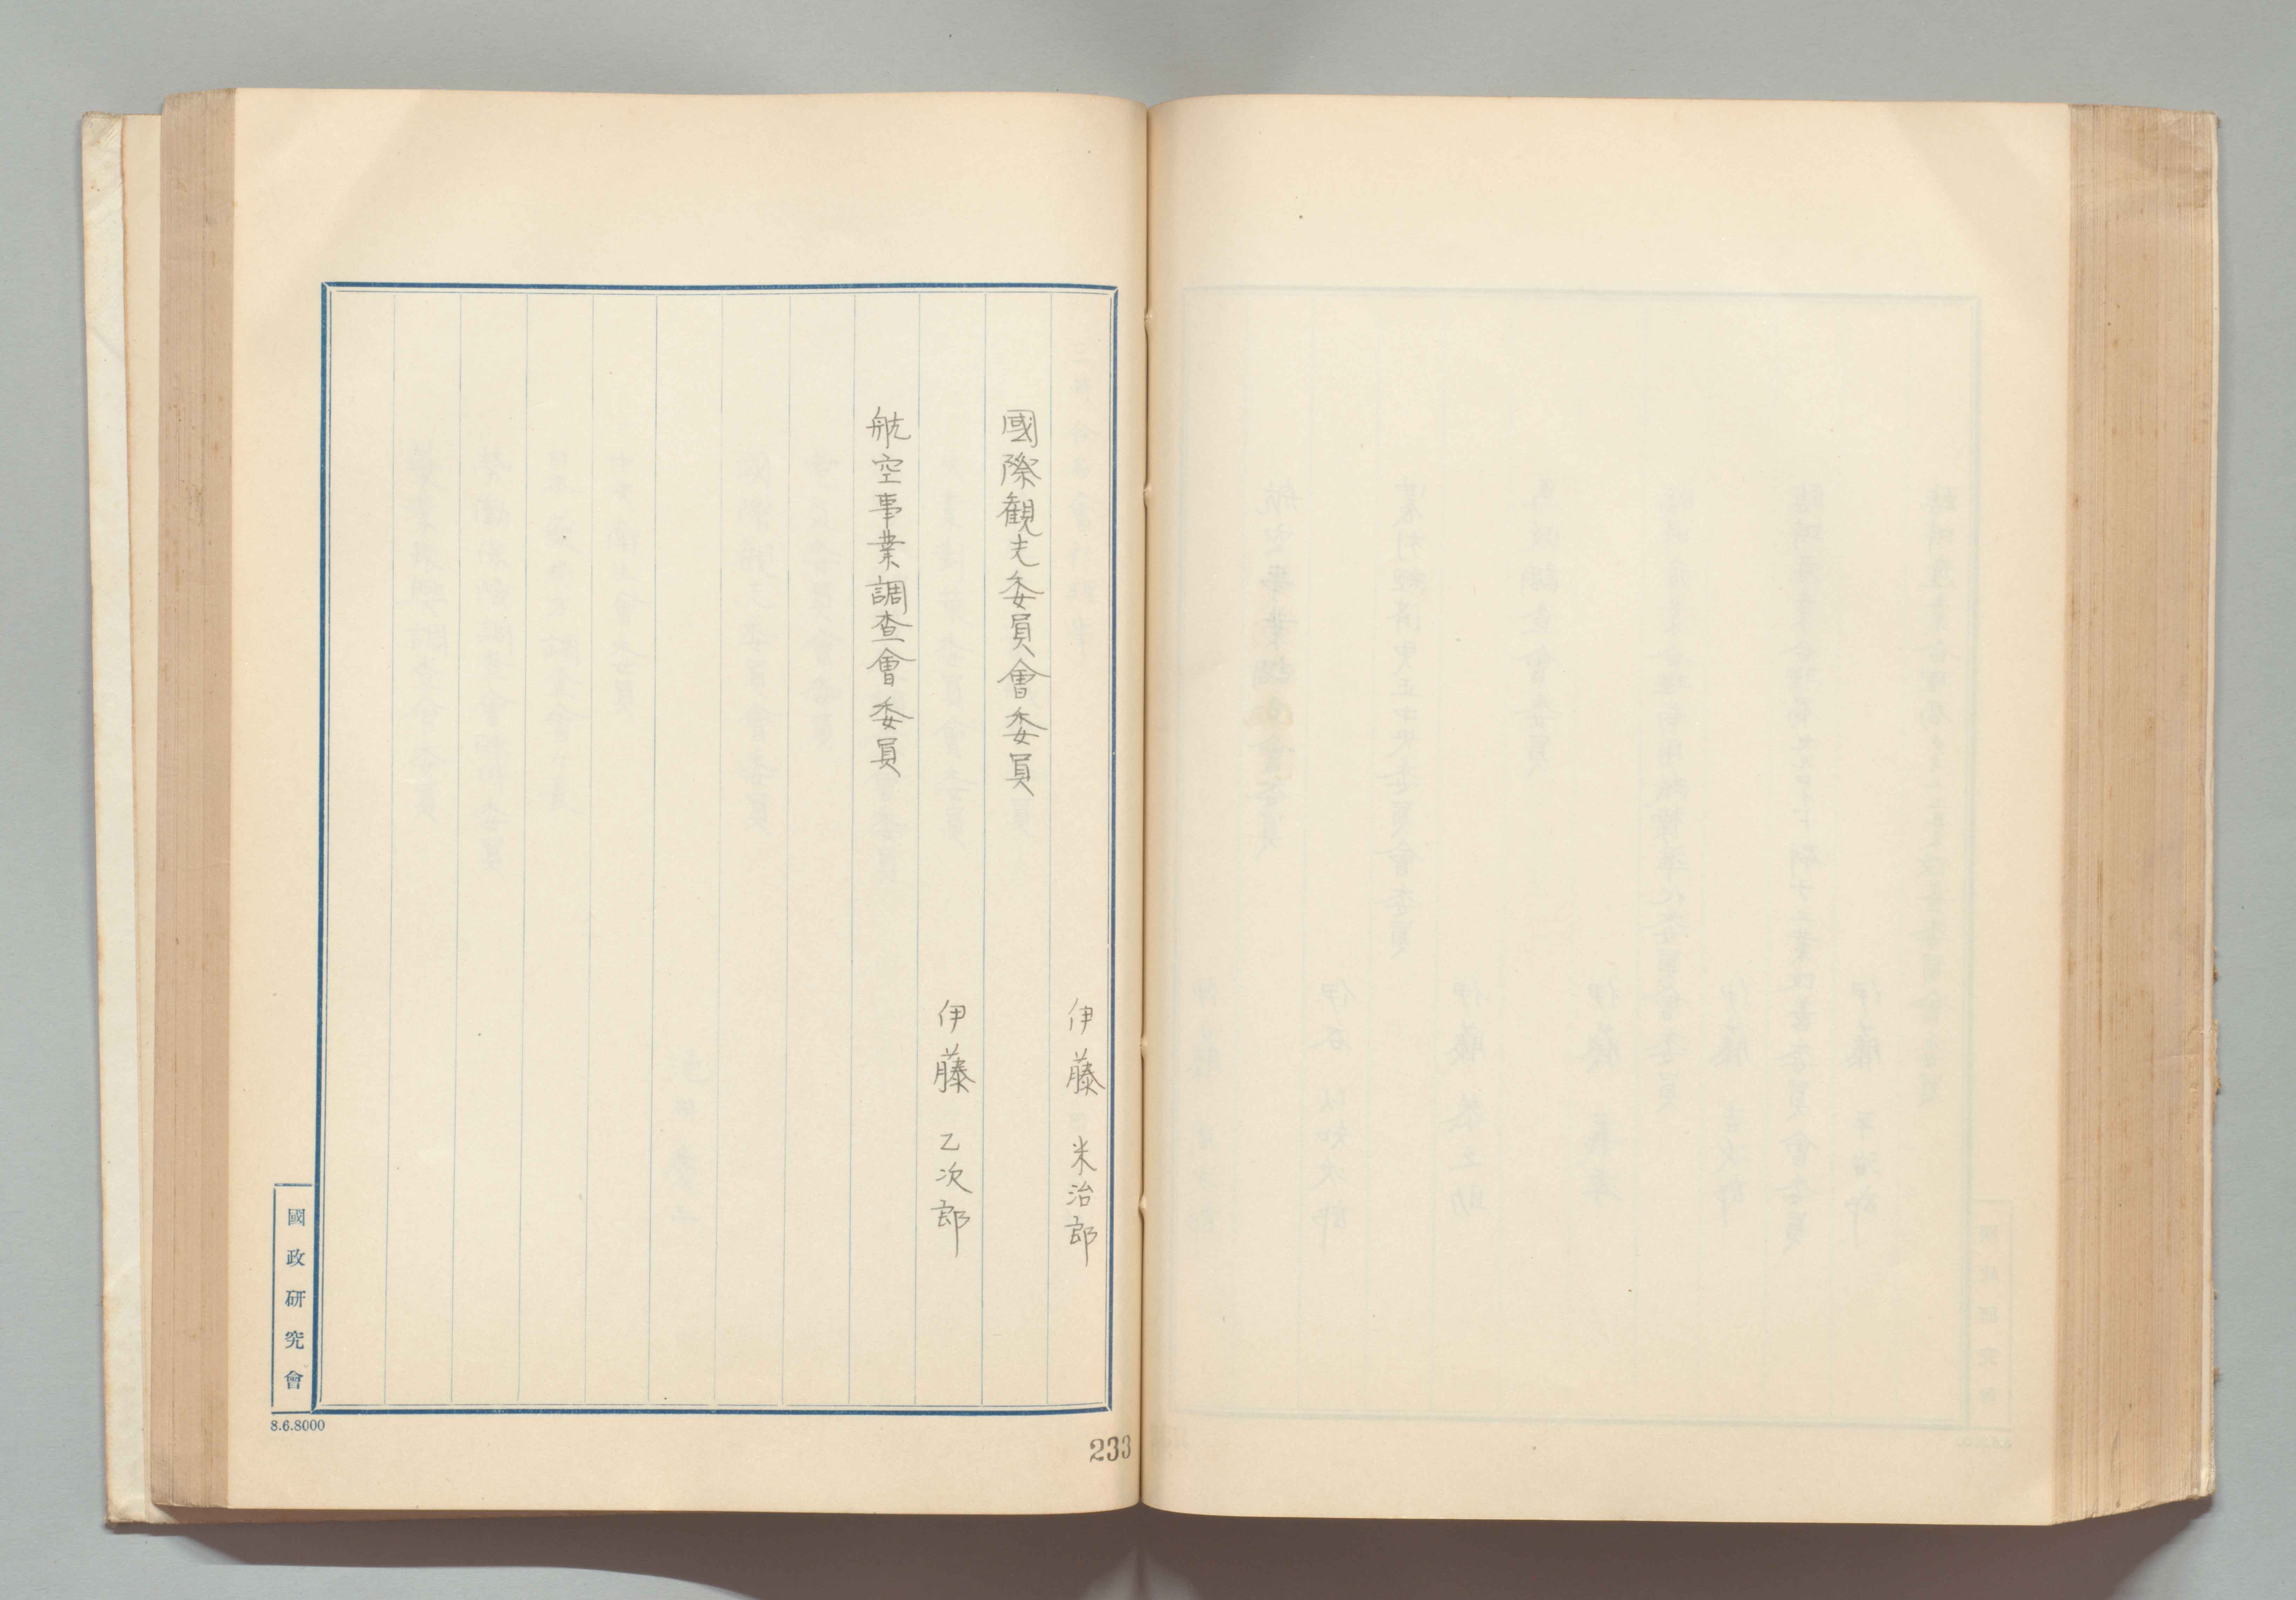 伊藤米治郎
國際観光委員會委員
伊藤乙次郎
航空事業調查會委員
國政研究會
8.6.8000
233